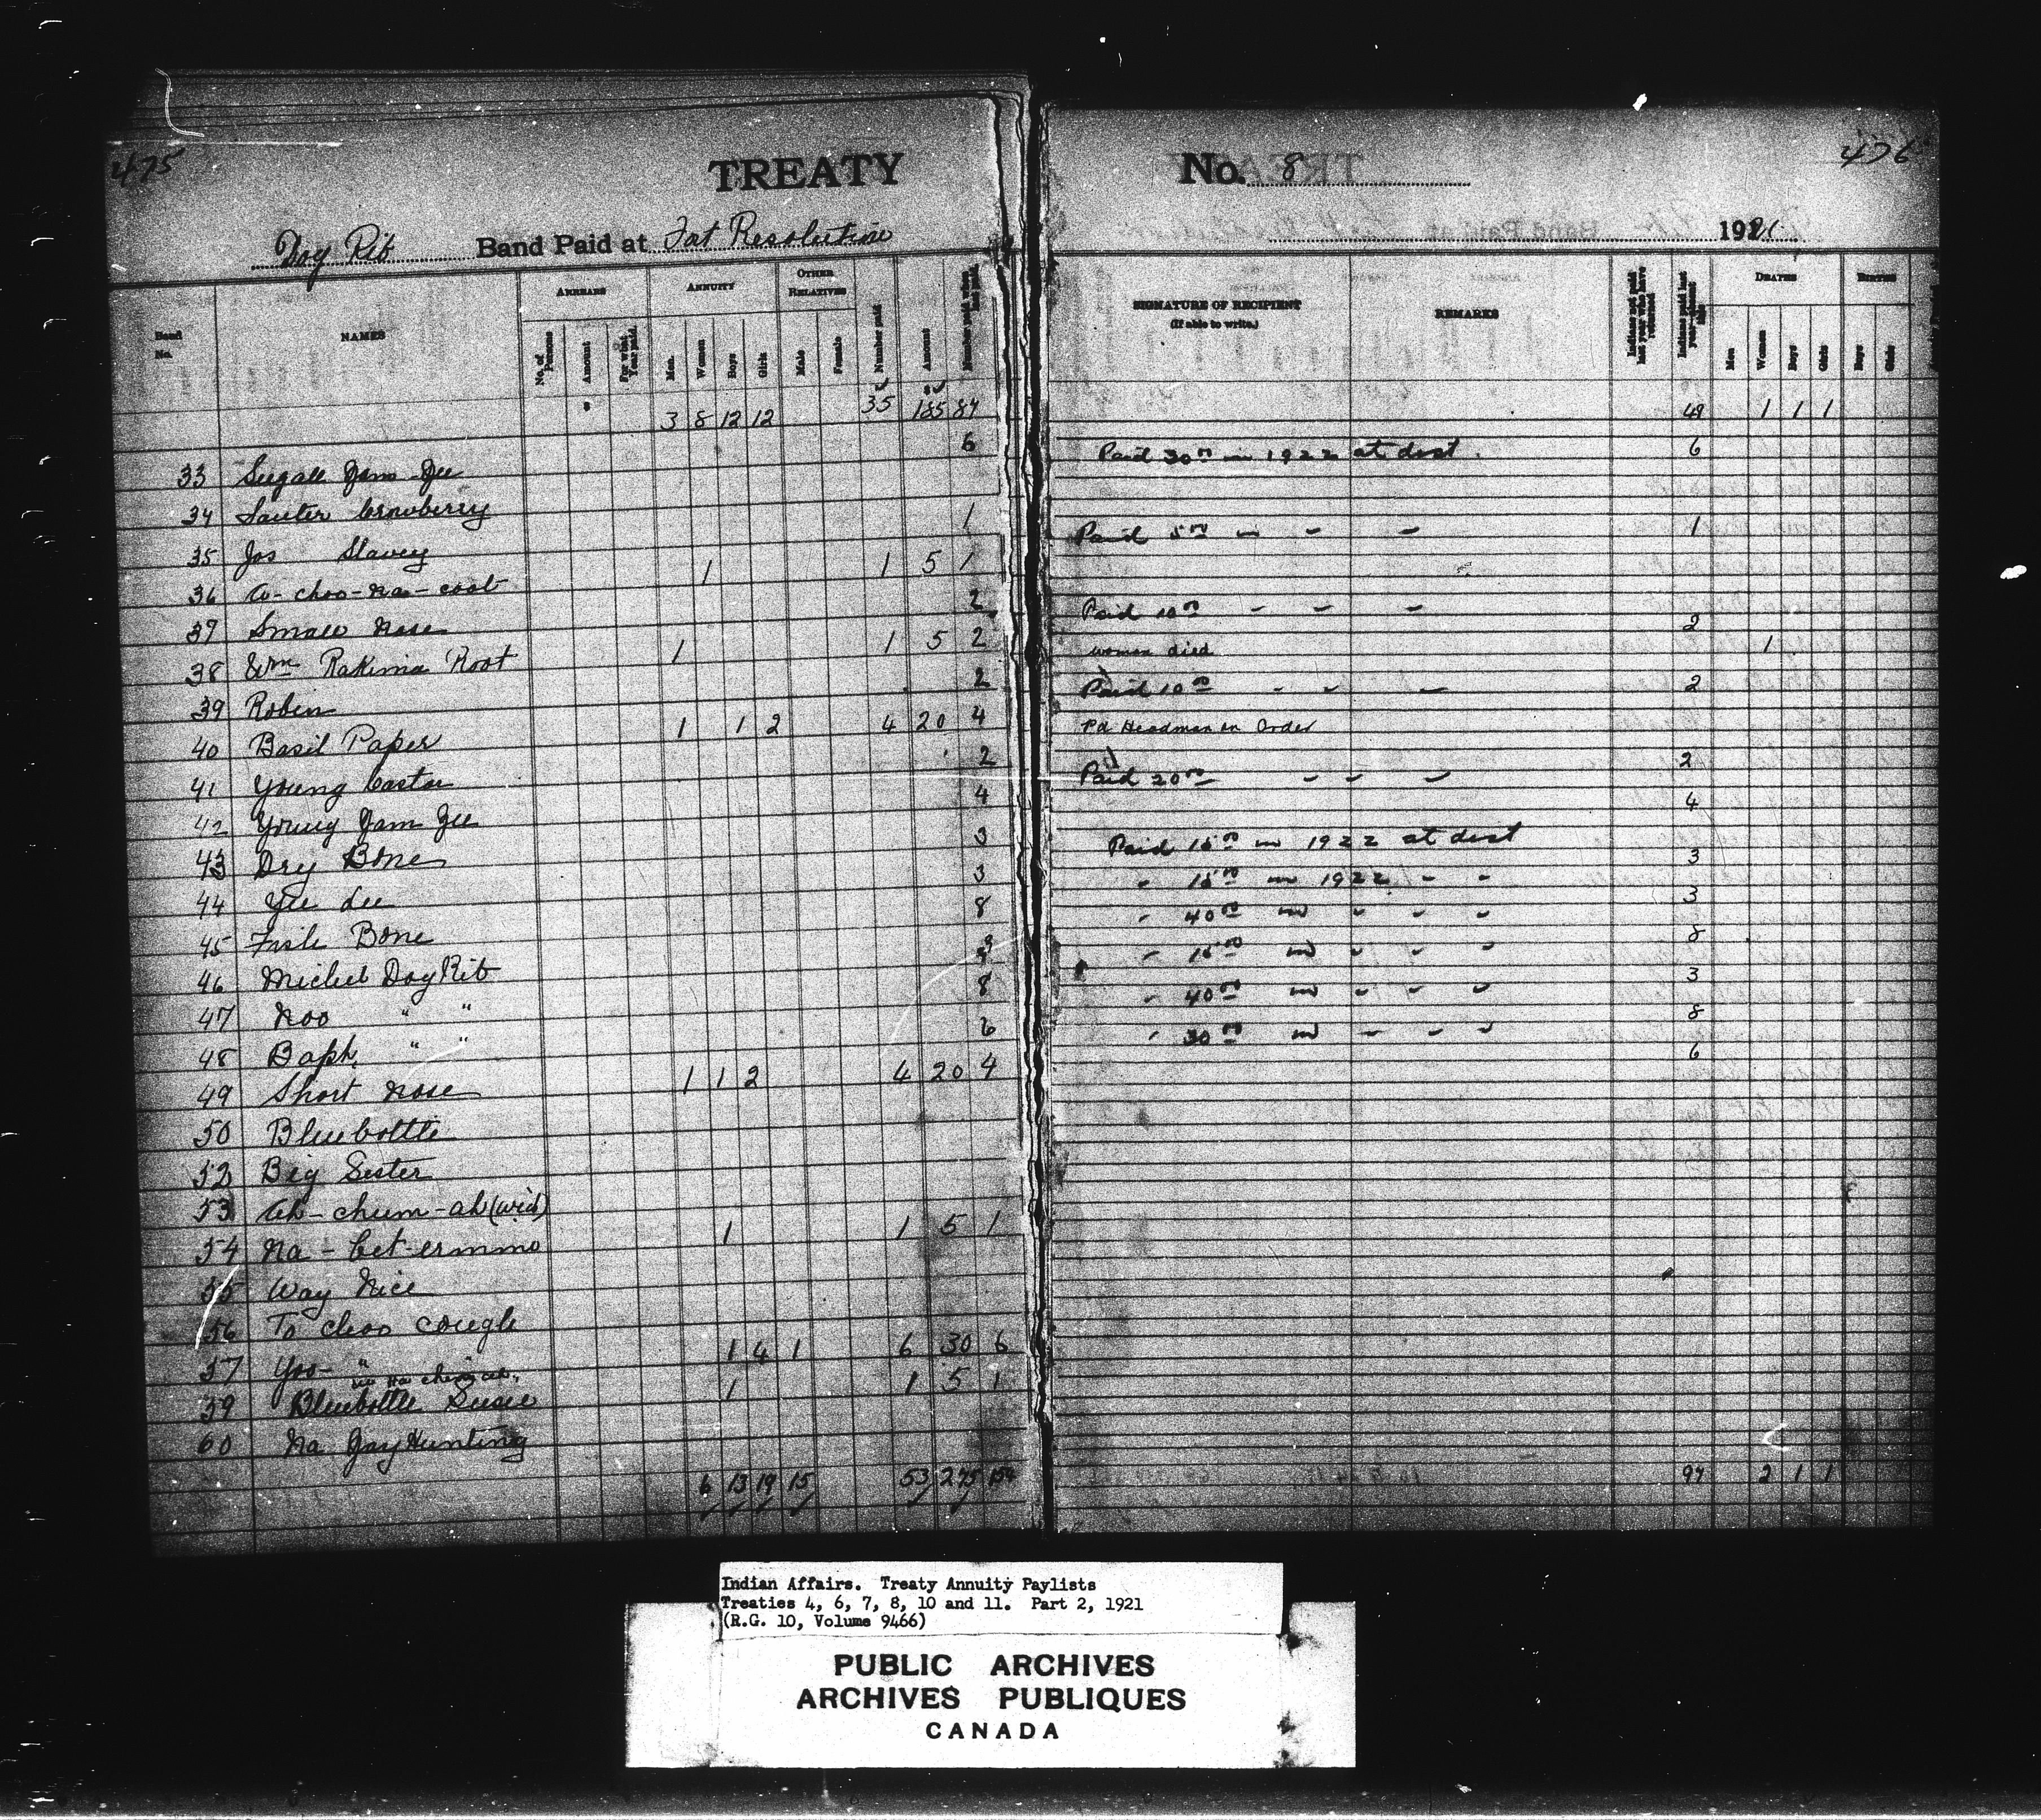 475
TREATY No. 8
476
Dog Rib Band Paid at Fort Resolution 1921
Band No. NAMES ARREARS ANNUITY OTHER RELATIVES Number paid Amount SIGNATURE OF RECIPIENT (If able to write.) REMARKS Indians not paid last year who have returned Indians paid last year DEATHS BIRTHS
No. of Persons Amount For what Year paid. Men. Women Boys Girls Male Female Men Women Boys Girls Boys Girls
3 8 12 12 35 185 84 49 1 1 1
33 6 Paid 30.00 in 1922 at dist. 6
34
35 Jos Slavey 1 Paid 5.00 " " " 1
36 A-choo-na-coot 1 1 5 1
37 Small Nose 2 Paid 10.00 - - - 2
38 Wm Rakima Root 1 1 5 2 woman died 1
39 Robin 2 Paid 10.00 - - - 2
40 Basil Paper 1 1 2 4 20 4 Pd Headman on Order
41 Young 2 Paid 20.00 - - - 2
42 Young Jam Jee 4 4
43 Dry Bone 3 Paid 15.00 in 1922 at dist 3
44 Yee Lee 3 " 15.00 in 1922 - - 3
45 Fish Bone 8 " 40.00 in " " " 8
46 Michel Dog Rib 3 " 15.00 in " " " 3
47 Noo " " 8 " 40.00 in " " " 8
48 Baph " " 6 " 30.00 in " " " 6
49 Short Nose 1 1 2 4 20 4
50 Bluebottle
52 Big Sister
53 Ah-chum-ah (wid)
54 Na-bet-ermmo 1 1 5 1
55 Way Nice
56 To choo cough
57 Yoo- " 1 4 1 6 30 6
59 Bluebottle Susie 1 1 5 1
60 Na Jay Hunting
6 13 19 15 53 275 154 97 2 1 1
Indian Affairs. Treaty Annuity Paylists
Treaties 4, 6, 7, 8, 10 and 11. Part 2, 1921
(R.G. 10, Volume 9466)
PUBLIC ARCHIVES
ARCHIVES PUBLIQUES
CANADA